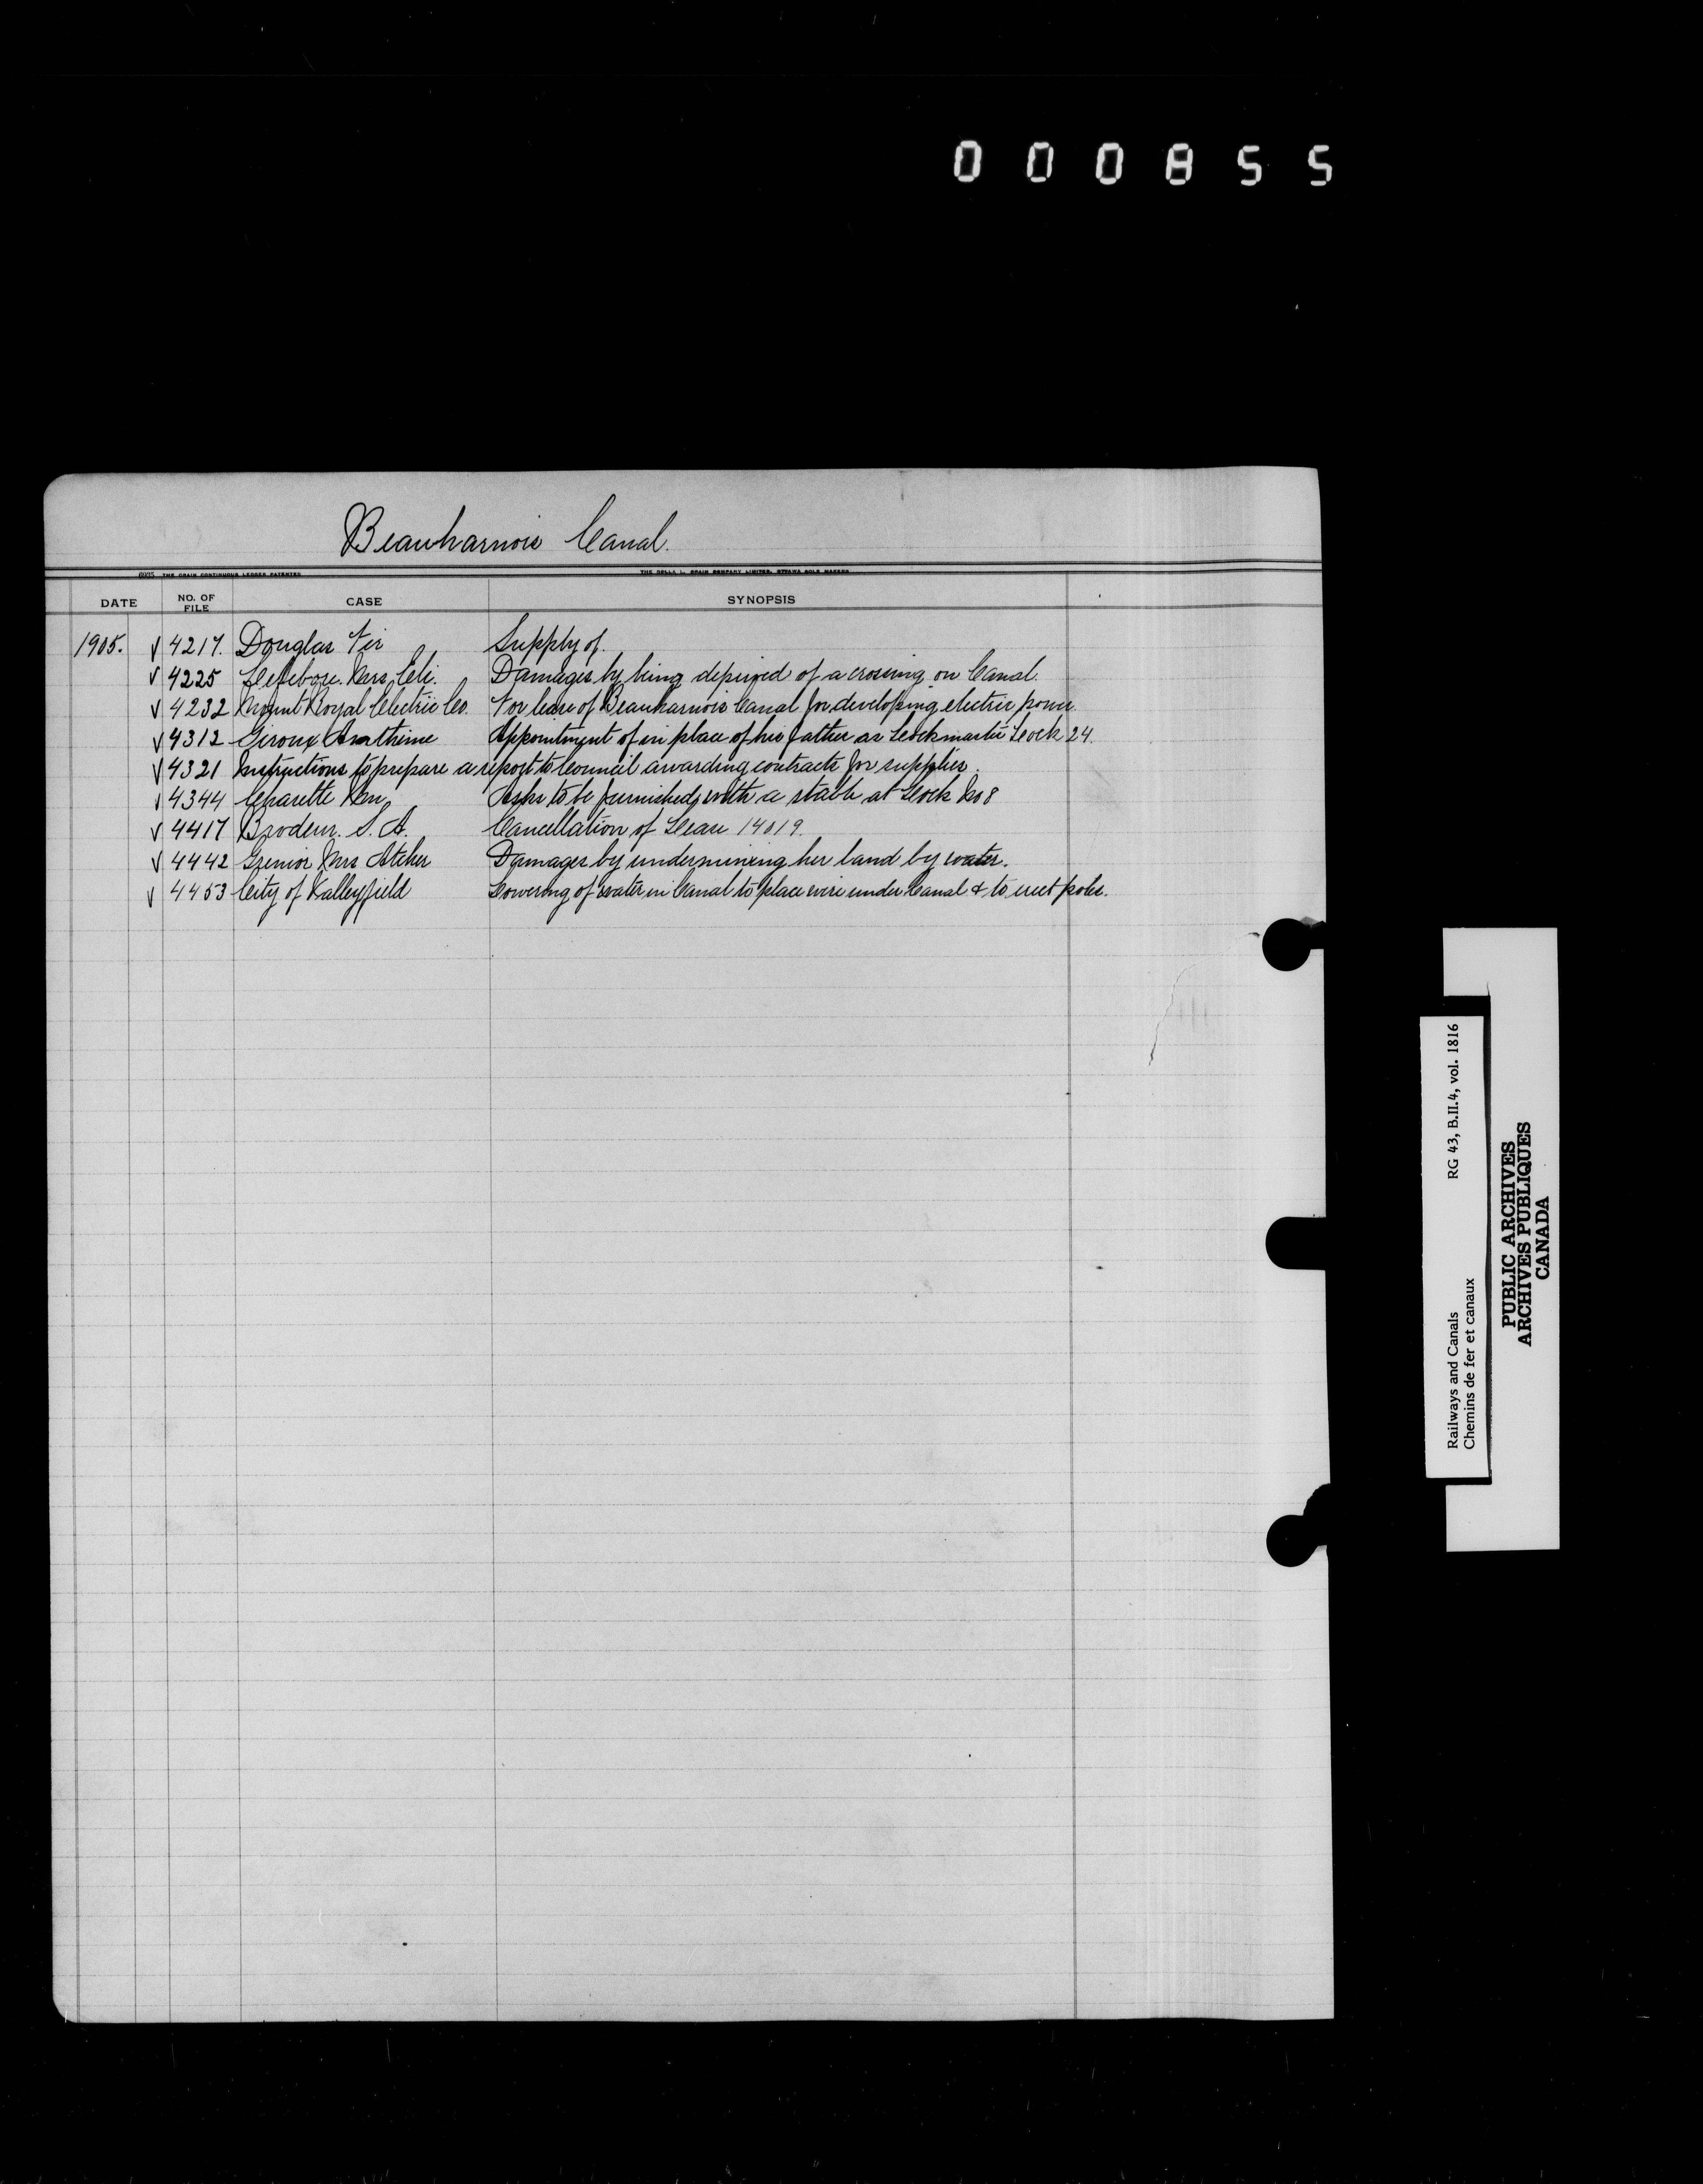 000855
Beauharnois Canal.
THE CRAIN CONTINUOUS LEDGER PATENTED
THE ROLLA L. CRAIN COMPANY LIMITED, OTTAWA SOLE MAKERS
DATE NO. OF FILE CASE SYNOPSIS
1905. √ 4217. Douglas Fir Supply of.
√ 4225 Mrs. Damages by being deprived of a crossing on Canal.
√ 4232 Mount Royal Electric Co. For lease of Beauharnois Canal for developing electric power.
√ 4312 Giroux Anthime Appointment of in place of his father as Lockmaster Lock 24.
√ 4321 Instructions to prepare a report to Council awarding contracts for supplies.
√ 4344 Charette Wm Asks to be furnished with a stable at Lock No 8
√ 4417 Brodeur. S. A. Cancellation of Lease 14019.
√ 4442 Grenior Mrs Damages by undermining her land by water.
√ 4453 City of Valleyfield Lowering of water in Canal to place wire under Canal & to erect poles.
Railways and Canals RG 43, B.II.4, vol. 1816
Chemins de fer et canaux
PUBLIC ARCHIVES
ARCHIVES PUBLIQUES
CANADA